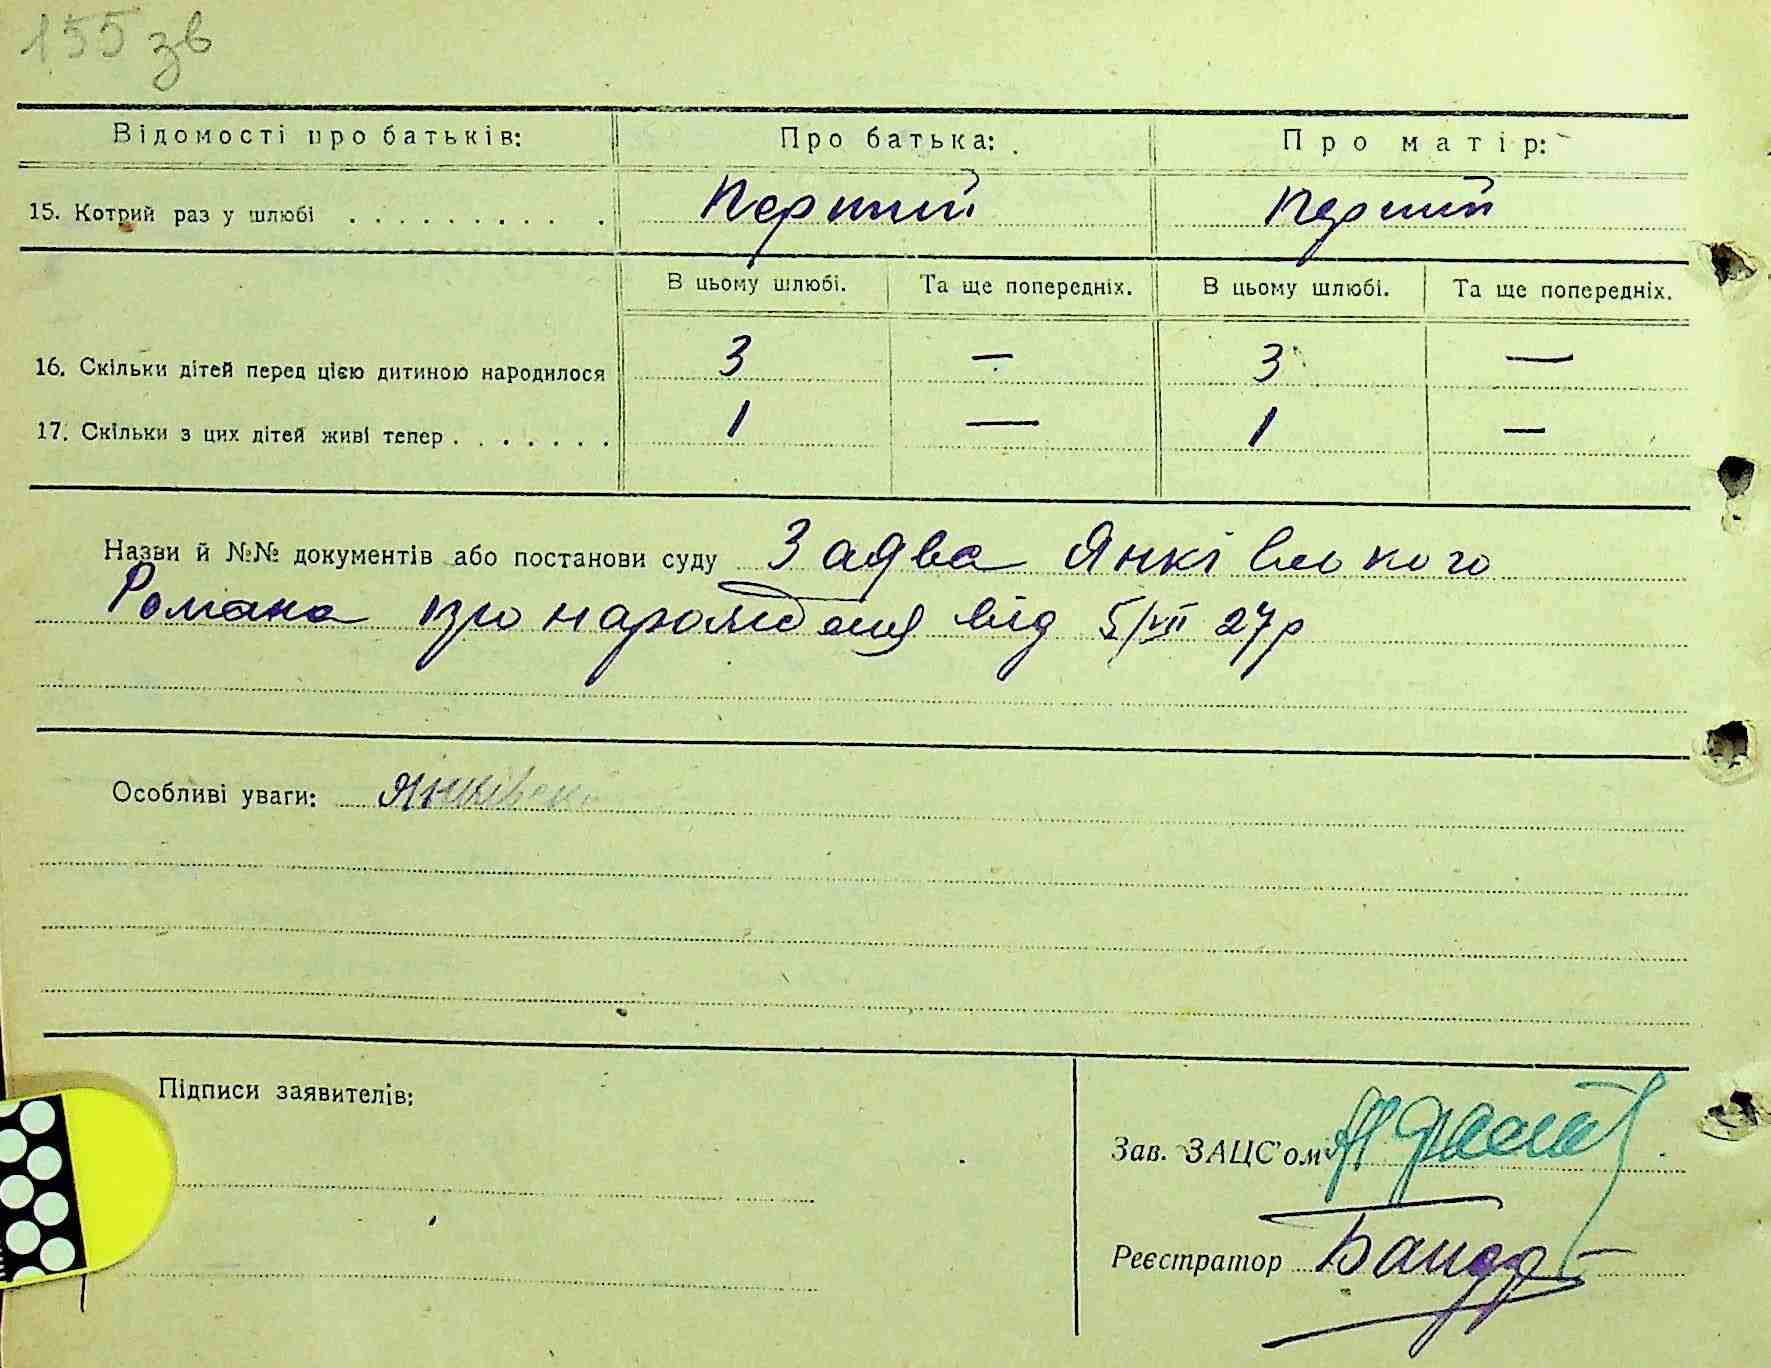 155 зв
Відомості про батьків: Про батька: Про матір:
15. Котрий раз у шлюбі . . . . . . . . . . Перший Перший
В цьому шлюбі. Та ще попередніх. В цьому шлюбі. Та ще попередніх.
16. Скільки дітей перед цією дитиною народилося 3 — 3 —
17. Скільки з цих дітей живі тепер . . . . . . . 1 — 1 —
Назви й №№ документів або постанови суду Заява Янківського
Романа про народженя від 5/VII 27р
Особливі уваги: Янківськ
Підписи заявителів:
Зав. ЗАЦС'ом
Реєстратор